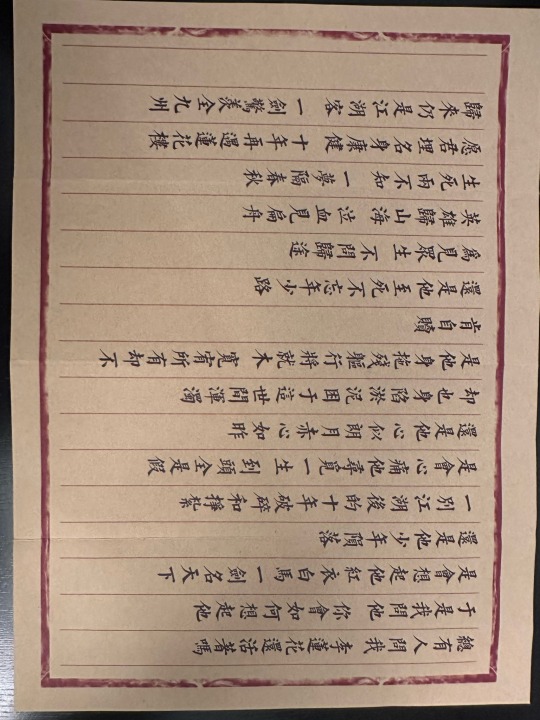 總有人問我李蓮花還活著嗎
于是我問他 你會如何想起他
是會想起他紅衣白馬一劍名天下
還是他少年隕落
一別江湖後的十年破碎和掙紮
是會心痛他尋覓一生到頭全是假
還是他心似朗月赤心如昨
却也身陷淤泥困于這世間渾濁
是他身拖殘軀行將就木寬宥所有却不
肯自贖
還是他至死不忘年少路
爲見眾生不問歸途
英雄歸山海 泣血見扁舟
生死兩不知 一夢隔春秋
愿君埋名身康健 十年再遇蓮花樓
歸來仍是江湖客 一劍驚羨全九州